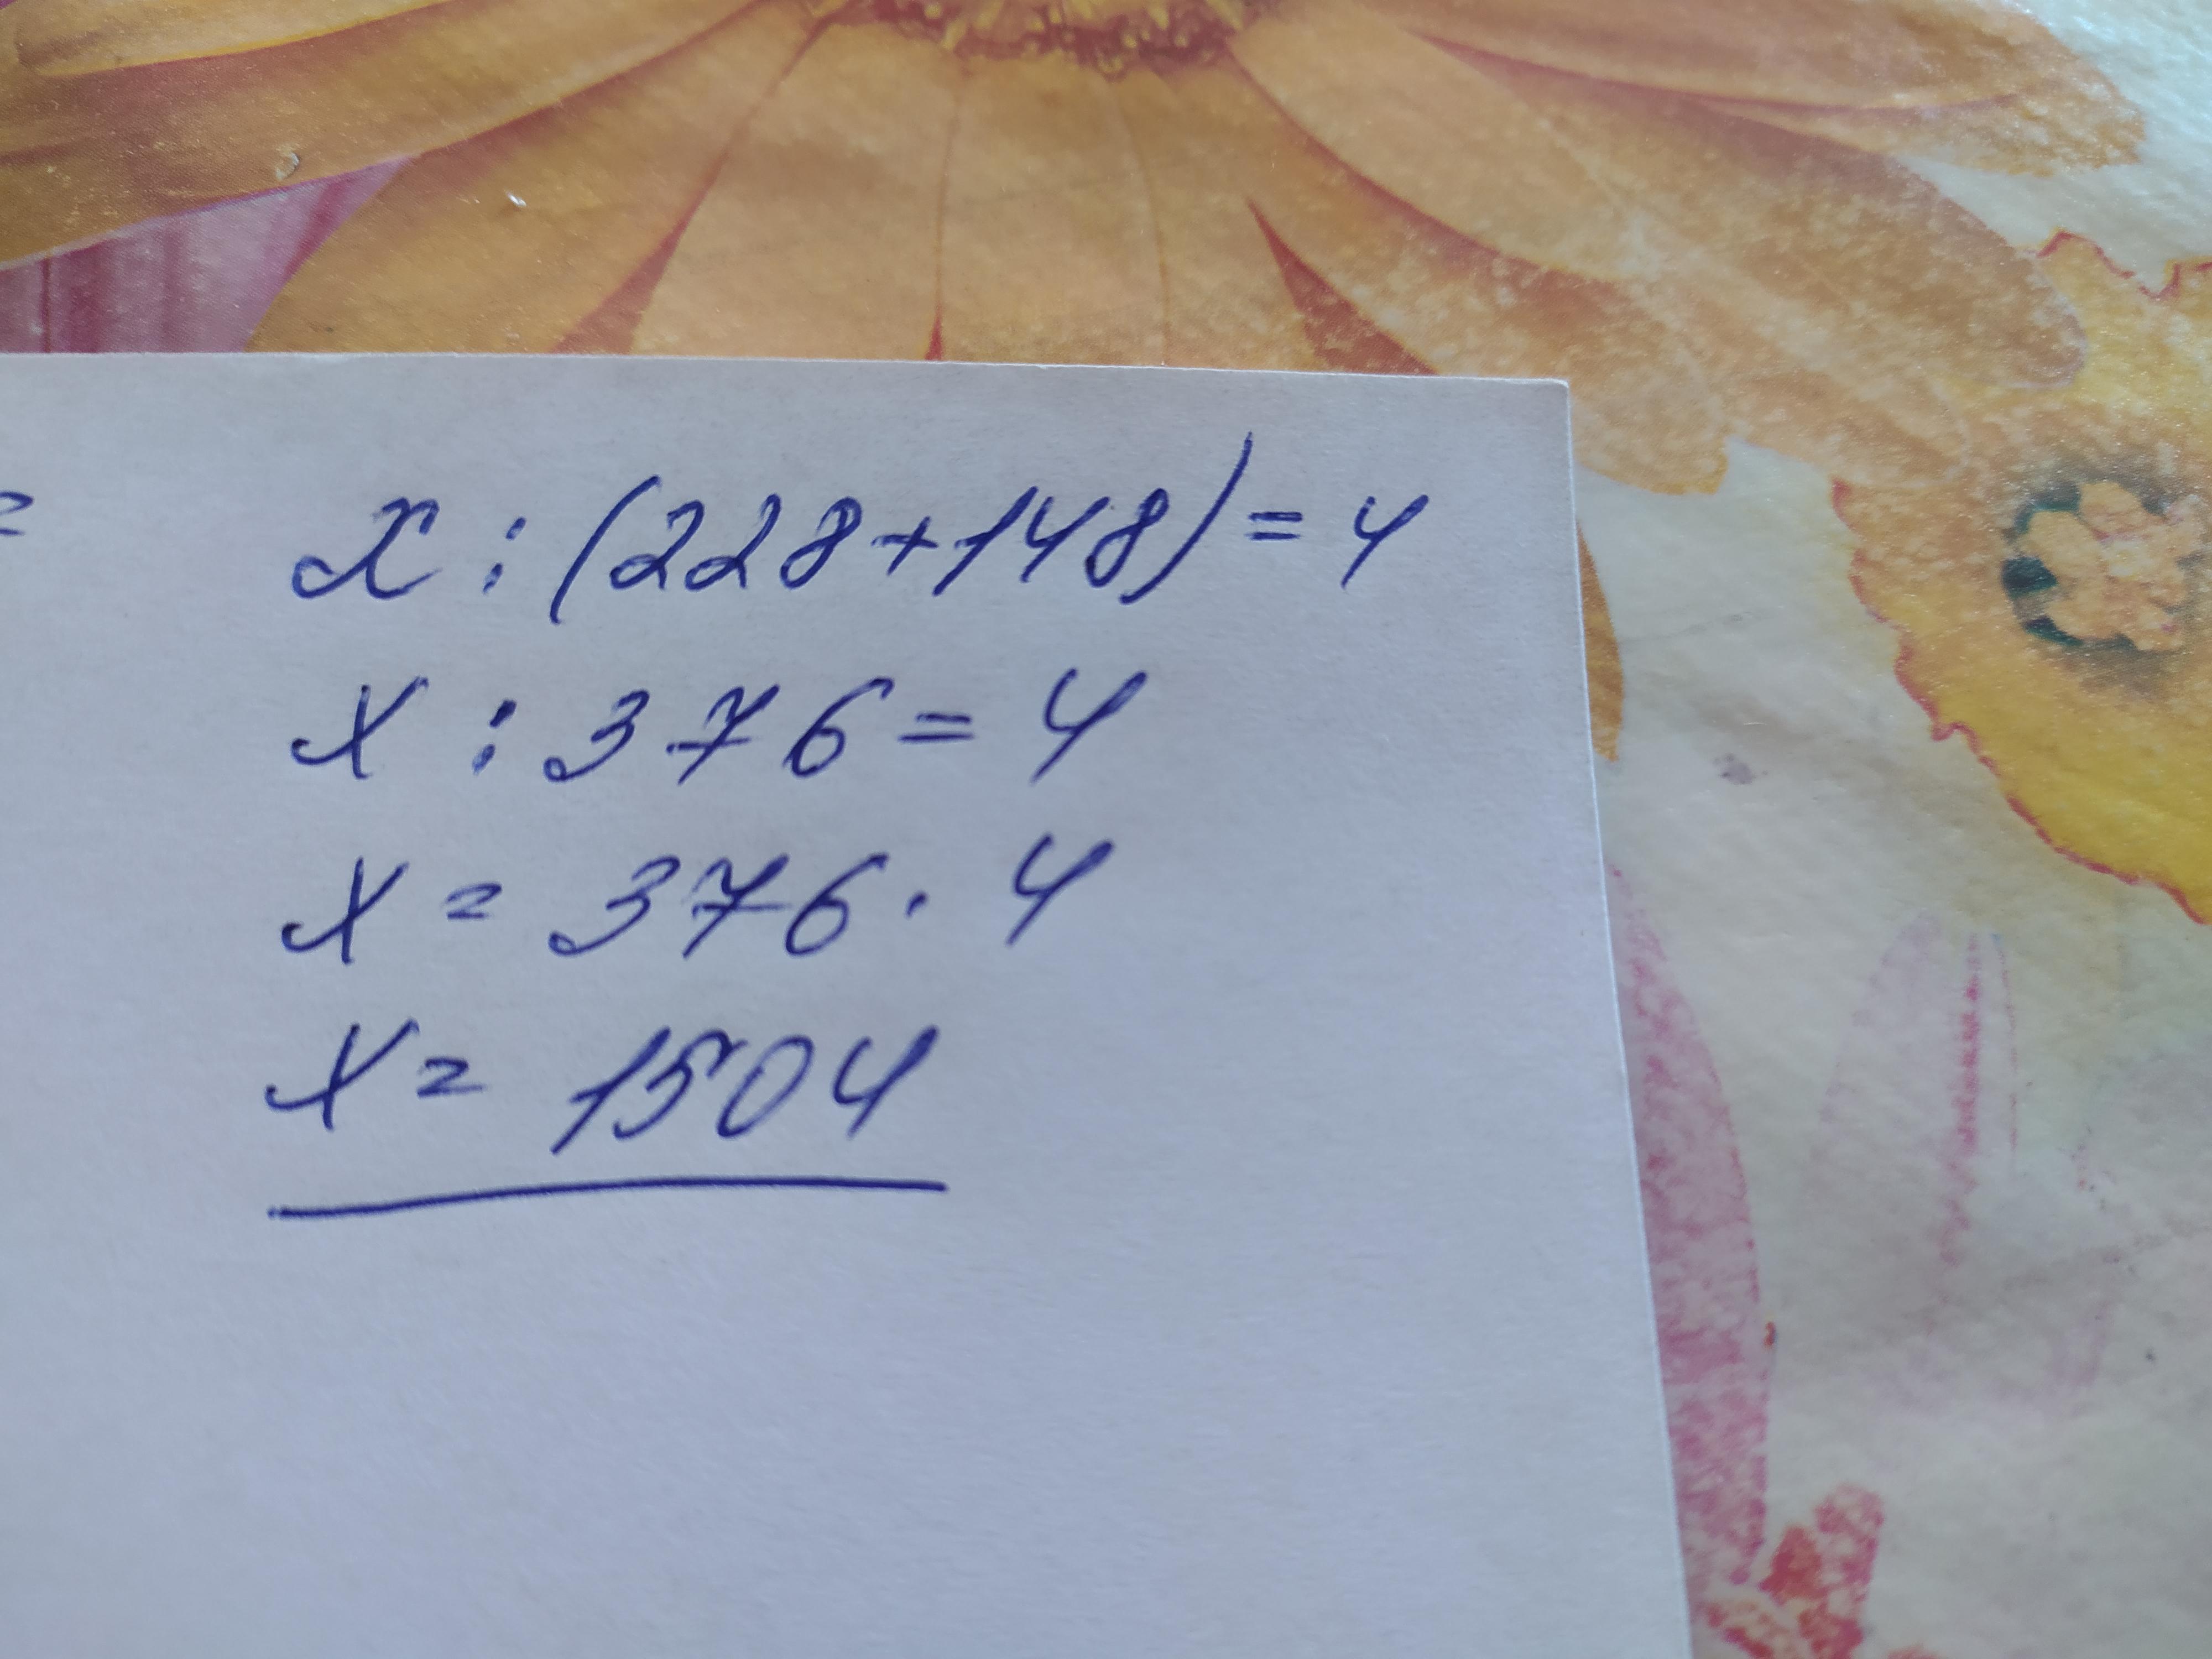 =
x : (228+148) = 4
x : 376 = 4
x = 376 · 4
x = 1504